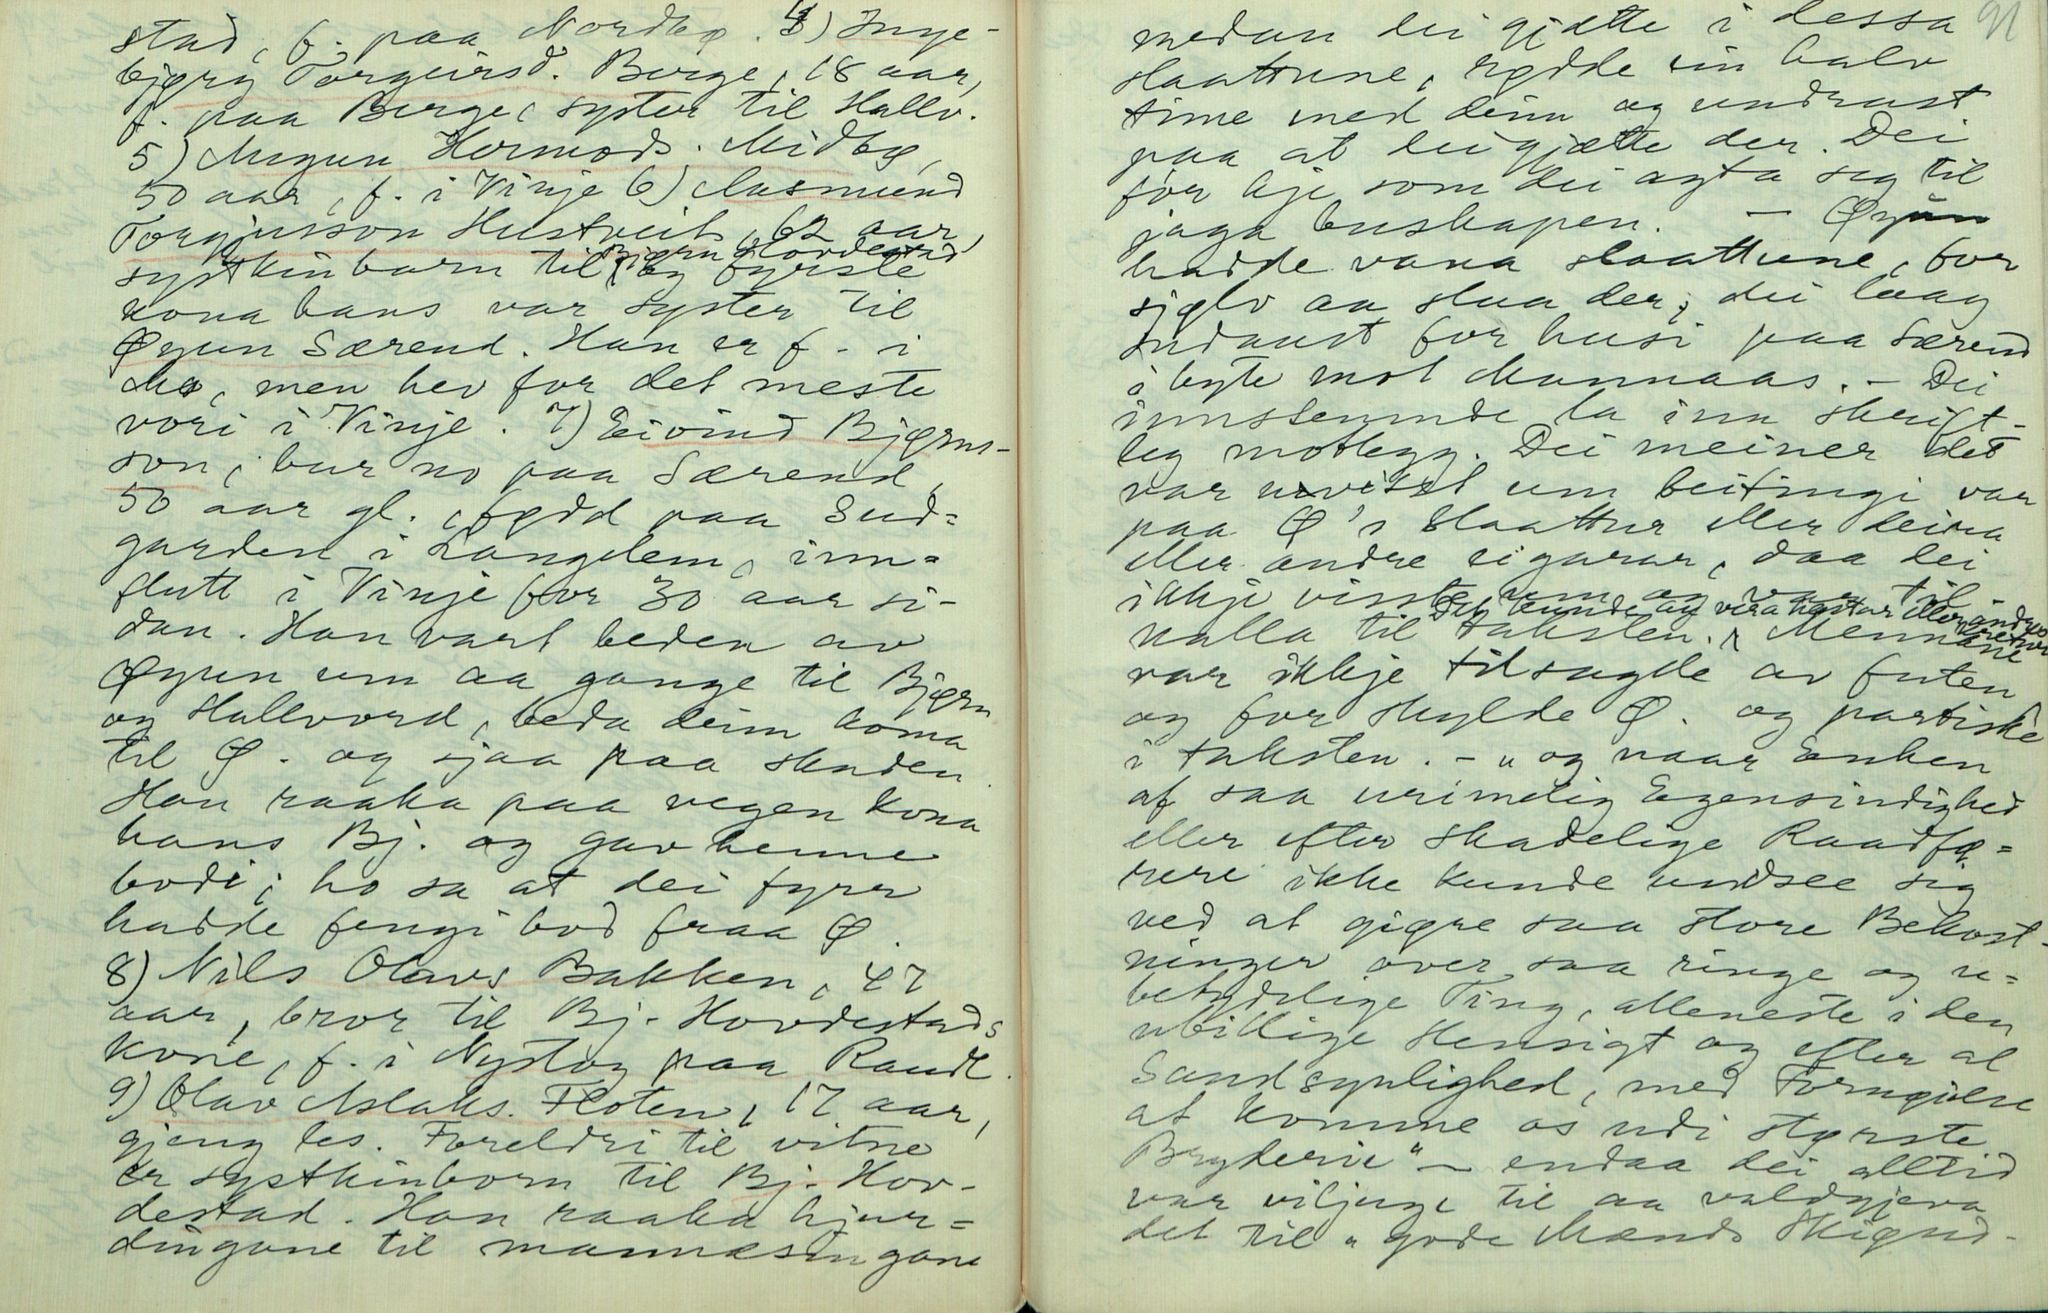 stad, f. paa Nordbø. 4) Inge-
bjørg Torgeirsd. Berge, 18 aar,
f. paa Berge, syster til Hallv.
5) Margun Hermods. Midbø,
50 aar, f. i Vinje 6) Aasmund
Torgjusson Hustveit, 62 aar,
systkinbarn til Bjørn Hovdestad
og fyrste
kona hans var syster til
Øyun Særend. Han er f. i
Mo, men hev for det meste
vori i Vinje. 7) Eivind Bjørns-
son, bur no paa Særend,
50 aar gl., fødd paa Sud-
garden i Langelem, inn-
flutt i Vinje for 30 aar si-
dan. Han vart beden av
Øyun um aa gange til Bjørn
og Hallvord, beda deim koma
til Ø. og sjaa paa skaden
Han raaka paa vegen kona
hans Bj. og gav henne
bodi; ho sa at dei fyrr
hadde fengi bod fraa Ø.
8) Nils Olavs Bakken, 47
aar, bror til Bj. Hovdestads
kone, f. i Nystog paa Raudl.
9) Olav Aslaks. Floten, 17 aar,
gjeng les. Foreldri til vitne
er systkinborn til Bj. Hov-
destad. Han raaka hjur-
dingane til mannæsingane
91
medan dei gjætte i dessa
slaattune, rødde ein halv
time med deim og undrast
paa at dei gjætte der. Dei
for kje som dei agta seg til
jaga buskapen. — Øyun
hadde vana slaattune, for
sjølv aa slaa der; dei laag
sudaust for husi paa Særend
i byte mot Mannaas. — Dei
innstemnde la inn skrift-
leg motlegg. Dei meiner det
var uvisst um beitingi var
paa Ø's slaattur eller deira
eller andre eigarar, daa dei
ikkje visste um og var til-
kalla til taksten. Det kunde og vera hestar eller andre
kretur
Mennane
var ikkje tilsagde av futen
og for skylde Ø. og partiske
i taksten. — „og naar Enken
af saa urimelig Egensindighed
eller efter skadelige Raadfø-
rere ikke kunde undsee sig
ved at gjøre saa store Bekost-
ninger over saa ringe og u-
betydelige Ting, alleneste i den
ubillige Hensigt og efter al
Sandsynlighed, med Fornøielse
at komme os udi største
Bryderie“ — endaa dei alltid
var viljuge til aa valdgjeva
det til „gode Mænds Skiønd-